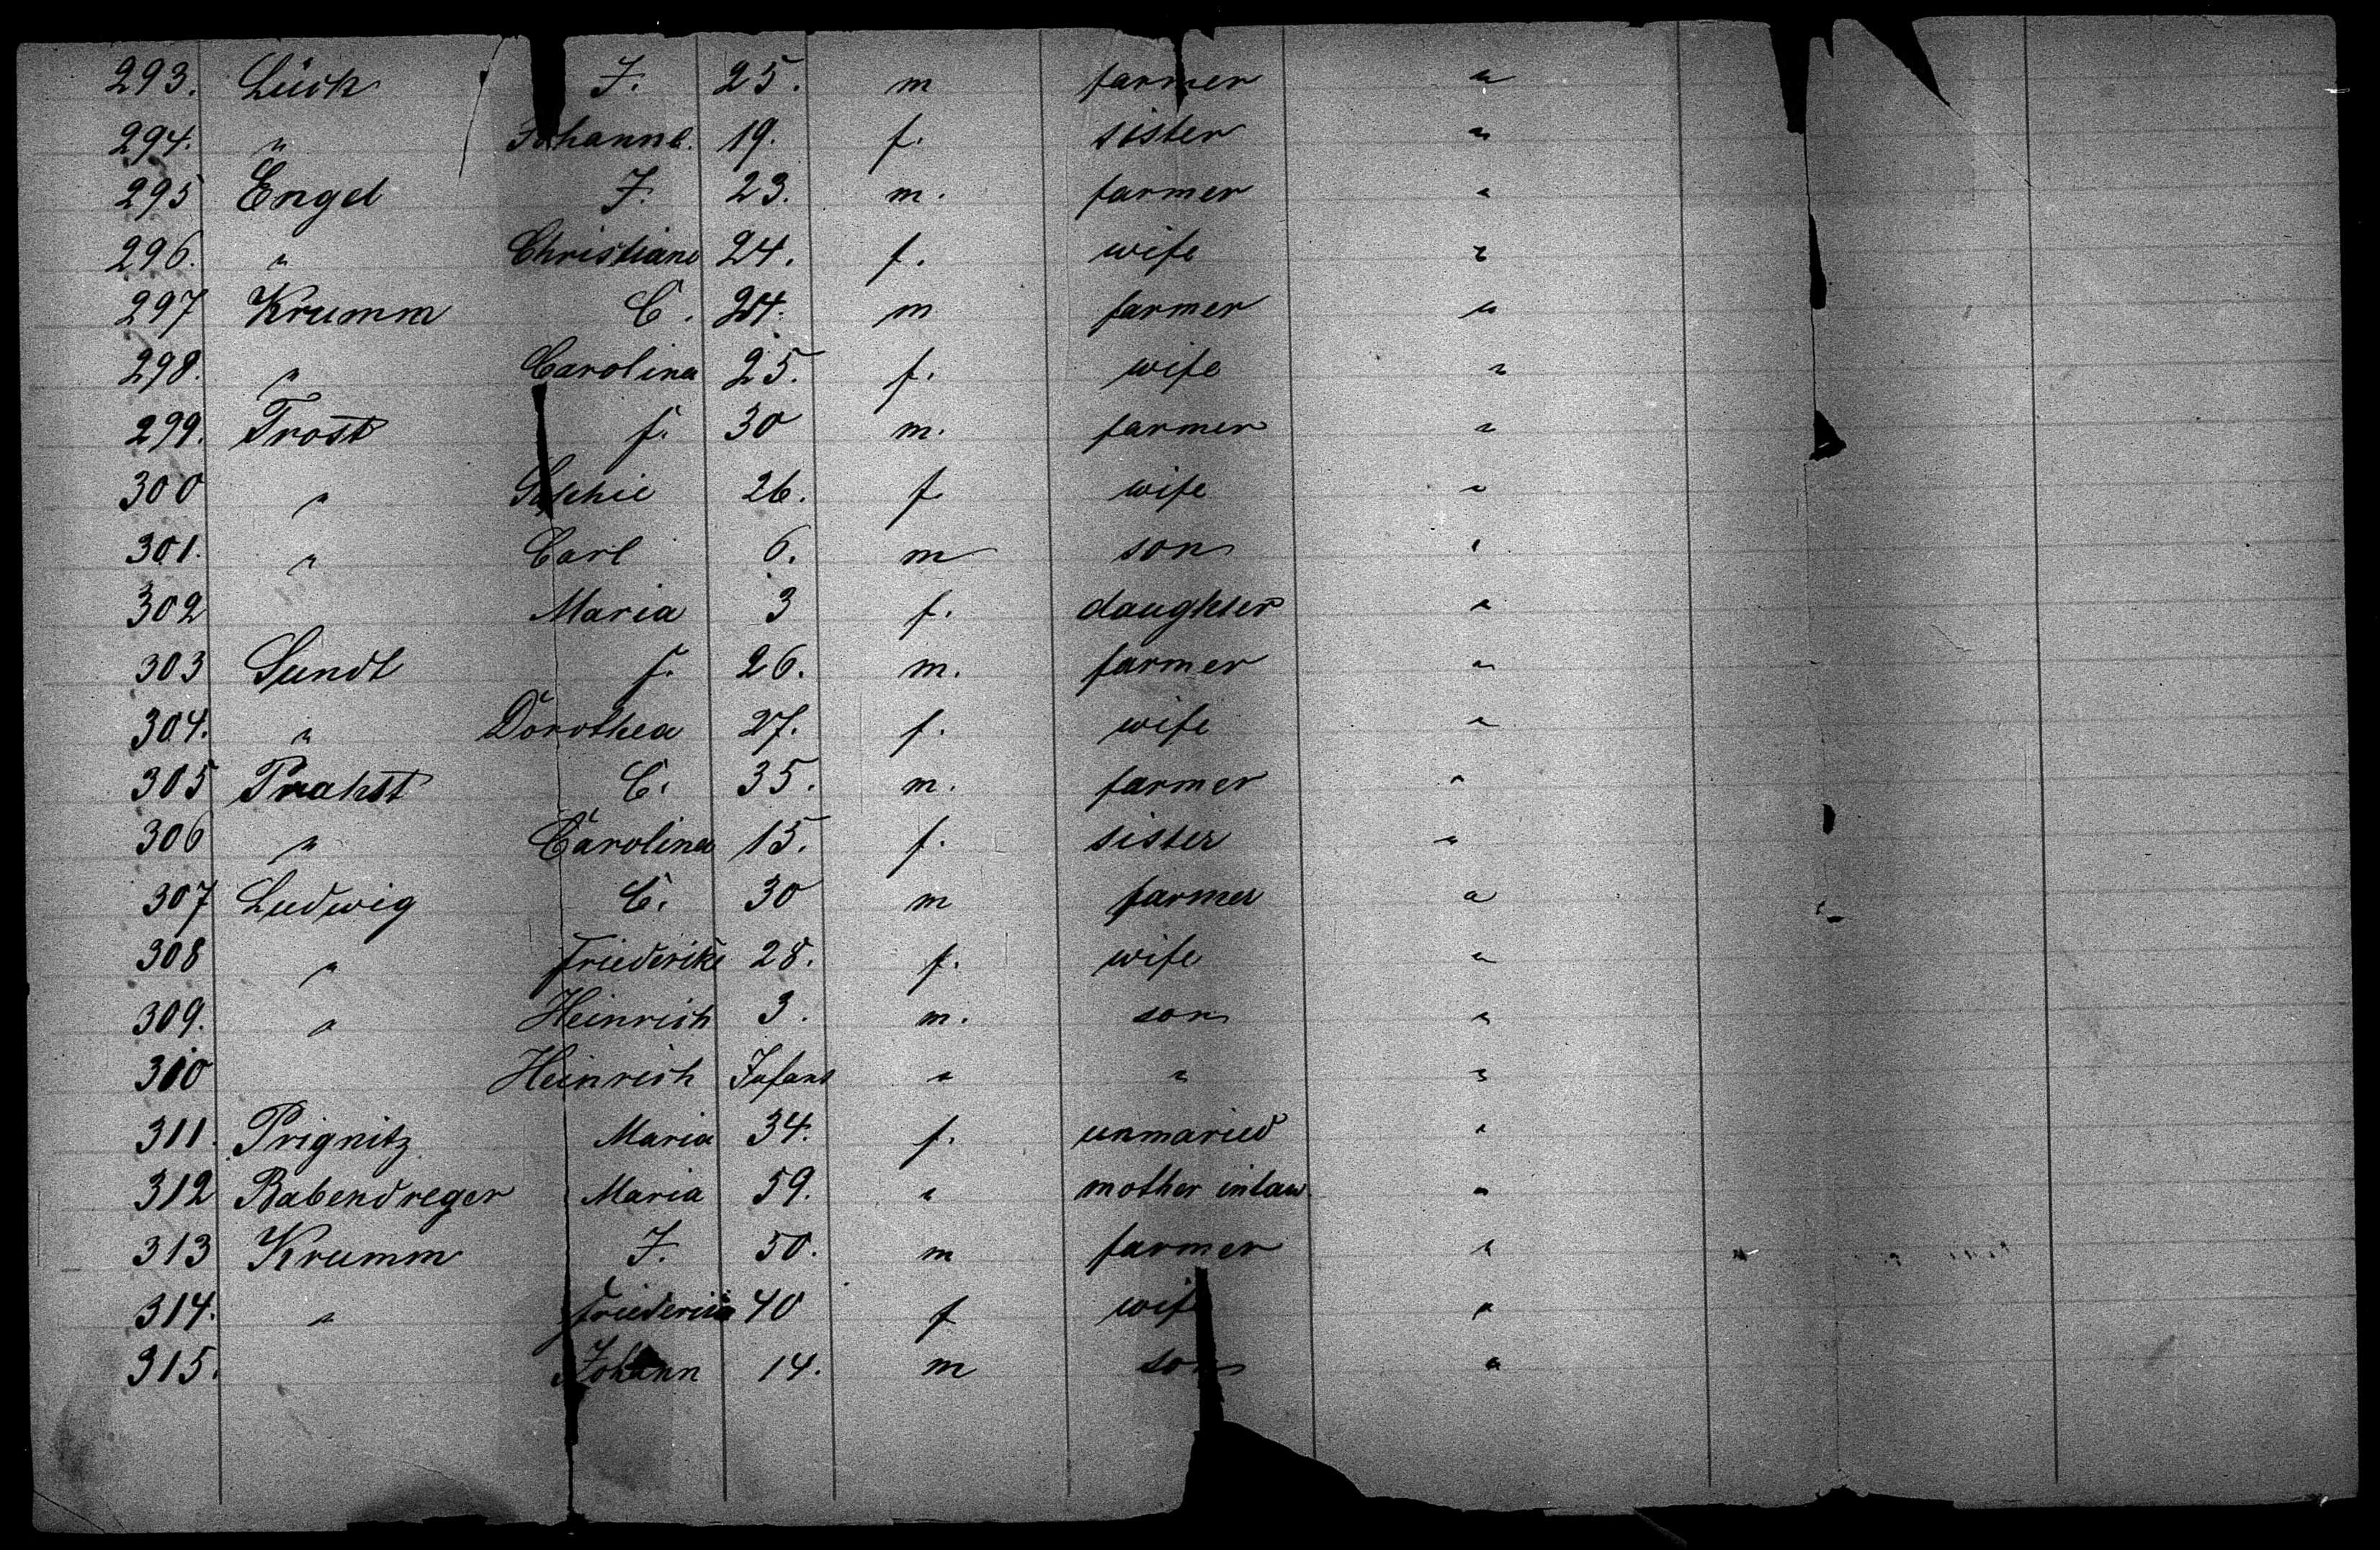 293. Lück J. 25. m farmer "
294. " Johanne. 19. f. sister "
295 Engel J. 23. m. farmer "
296. " Christiane 24. f. wife "
297 Krumm C. 24. m farmer "
298. " Carolina 25. f. wife "
299. Trost f. 30 m. farmer "
300 " Sophie 26. f wife "
301. " Carl 6. m son "
302 Maria 3 f. daughter "
303 Sundt f. 26. m. farmer "
304. " Dorothea 27. f. wife "
305 Prahst C. 35. m. farmer "
306 " Carolina 15. f. sister "
307 Ludwig C. 30 m farmer "
308 " Friederike 28. f. wife "
309. " Heinrich 3. m. son "
310 Heinrich Infans " " "
311. Prignitz Maria 34. f. unmaried "
312 Babendreger Maria 59. " mother inlaw "
313 Krumm J. 50. m farmer "
314. " 40 f wife "
315. Johann 14. m son "